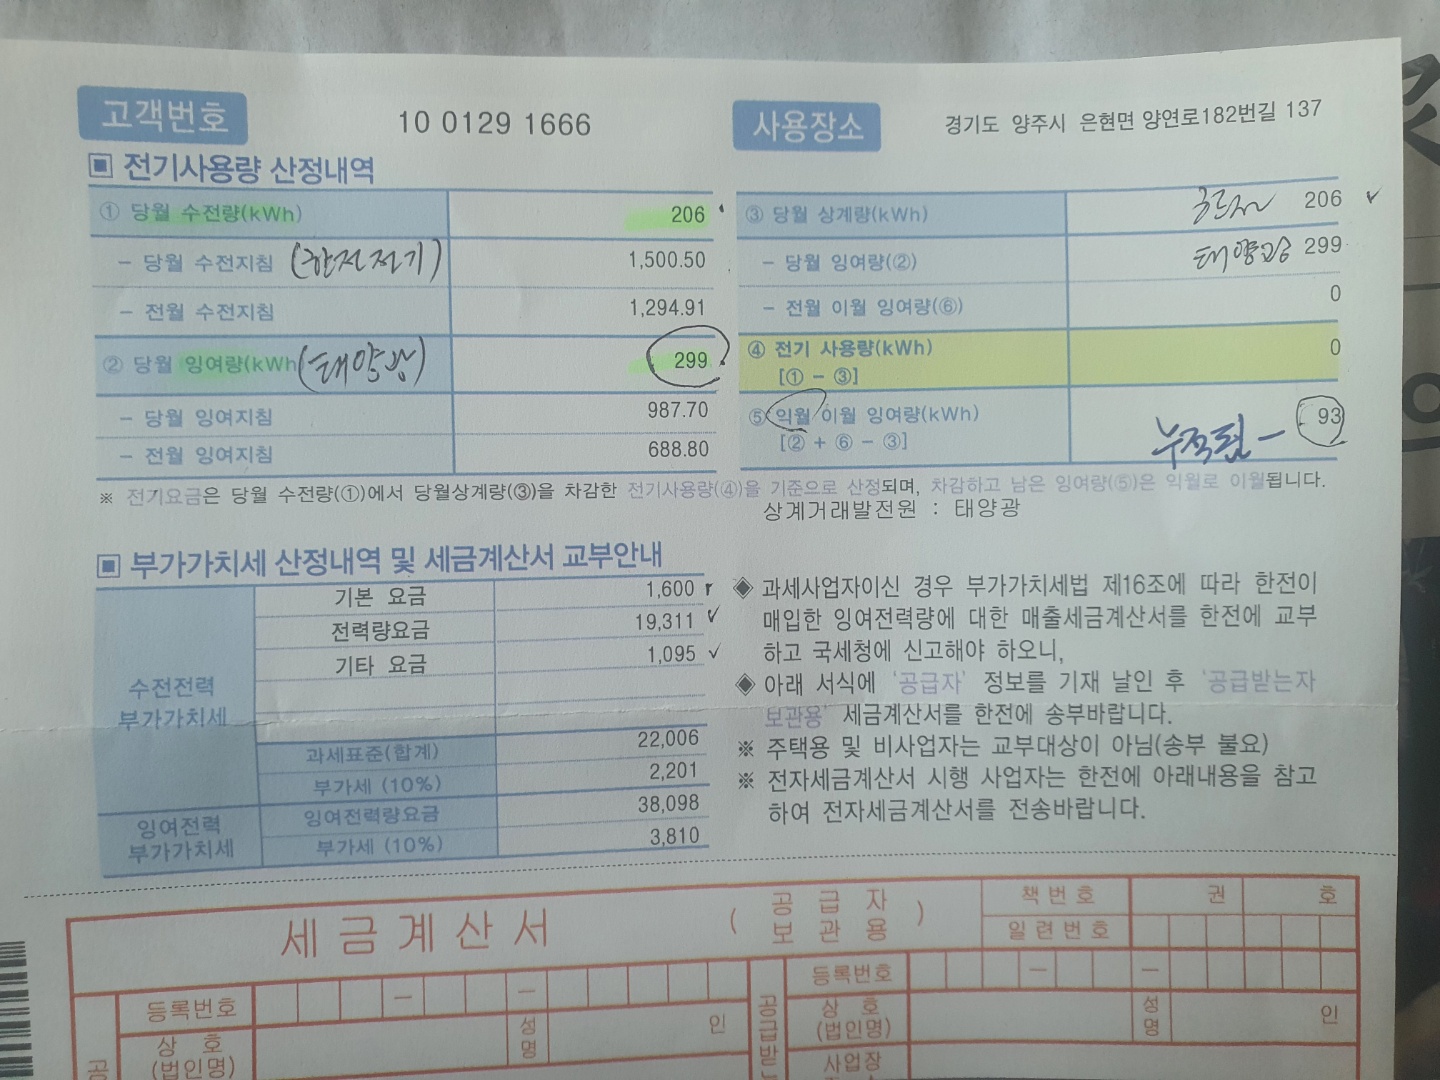 고객번호 10 0129 1666
사용장소 경기도 양주시 은현면 양연로182번길 137
▣ 전기사용량 산정내역
① 당월 수전량(kWh) 206
- 당월 수전지침 (한전전기) 1,500.50
- 전월 수전지침 1,294.91
② 당월 잉여량(kWh (태양광) 299
- 당월 잉여지침 987.70
- 전월 잉여지침 688.80
③ 당월 상계량(kWh) 206
- 당월 잉여량(②) 태양광 299
- 전월 이월 잉여량(⑥) 0
④ 전기 사용량(kWh) 0
[① - ③]
⑤ 익월 이월 잉여량(kWh) 93
[② + ⑥ - ③] 누적된 -
※ 전기요금은 당월 수전량(①)에서 당월상계량(③)을 차감한 전기사용량(④)을 기준으로 산정되며, 차감하고 남은 잉여량(⑤)은 익월로 이월됩니다.
상계거래발전원 : 태양광
▣ 부가가치세 산정내역 및 세금계산서 교부안내
수전전력
부가가치세
기본 요금 1,600
전력량요금 19,311
기타 요금 1,095
과세표준(합계) 22,006
부가세 (10%) 2,201
잉여전력
부가가치세
잉여전력량요금 38,098
부가세 (10%) 3,810
◈ 과세사업자이신 경우 부가가치세법 제16조에 따라 한전이
매입한 잉여전력량에 대한 매출세금계산서를 한전에 교부
하고 국세청에 신고해야 하오니,
◈ 아래 서식에 '공급자' 정보를 기재 날인 후 '공급받는자
보관용' 세금계산서를 한전에 송부바랍니다.
※ 주택용 및 비사업자는 교부대상이 아님(송부 불요)
※ 전자세금계산서 시행 사업자는 한전에 아래내용을 참고
하여 전자세금계산서를 전송바랍니다.
세금계산서
( 공급자
보관용 )
책번호 권 호
일련번호
등록번호 - -
상 호
(법인명)
성명
인
공
공급받
등록번호 - -
상 호
(법인명)
성명
인
사업장